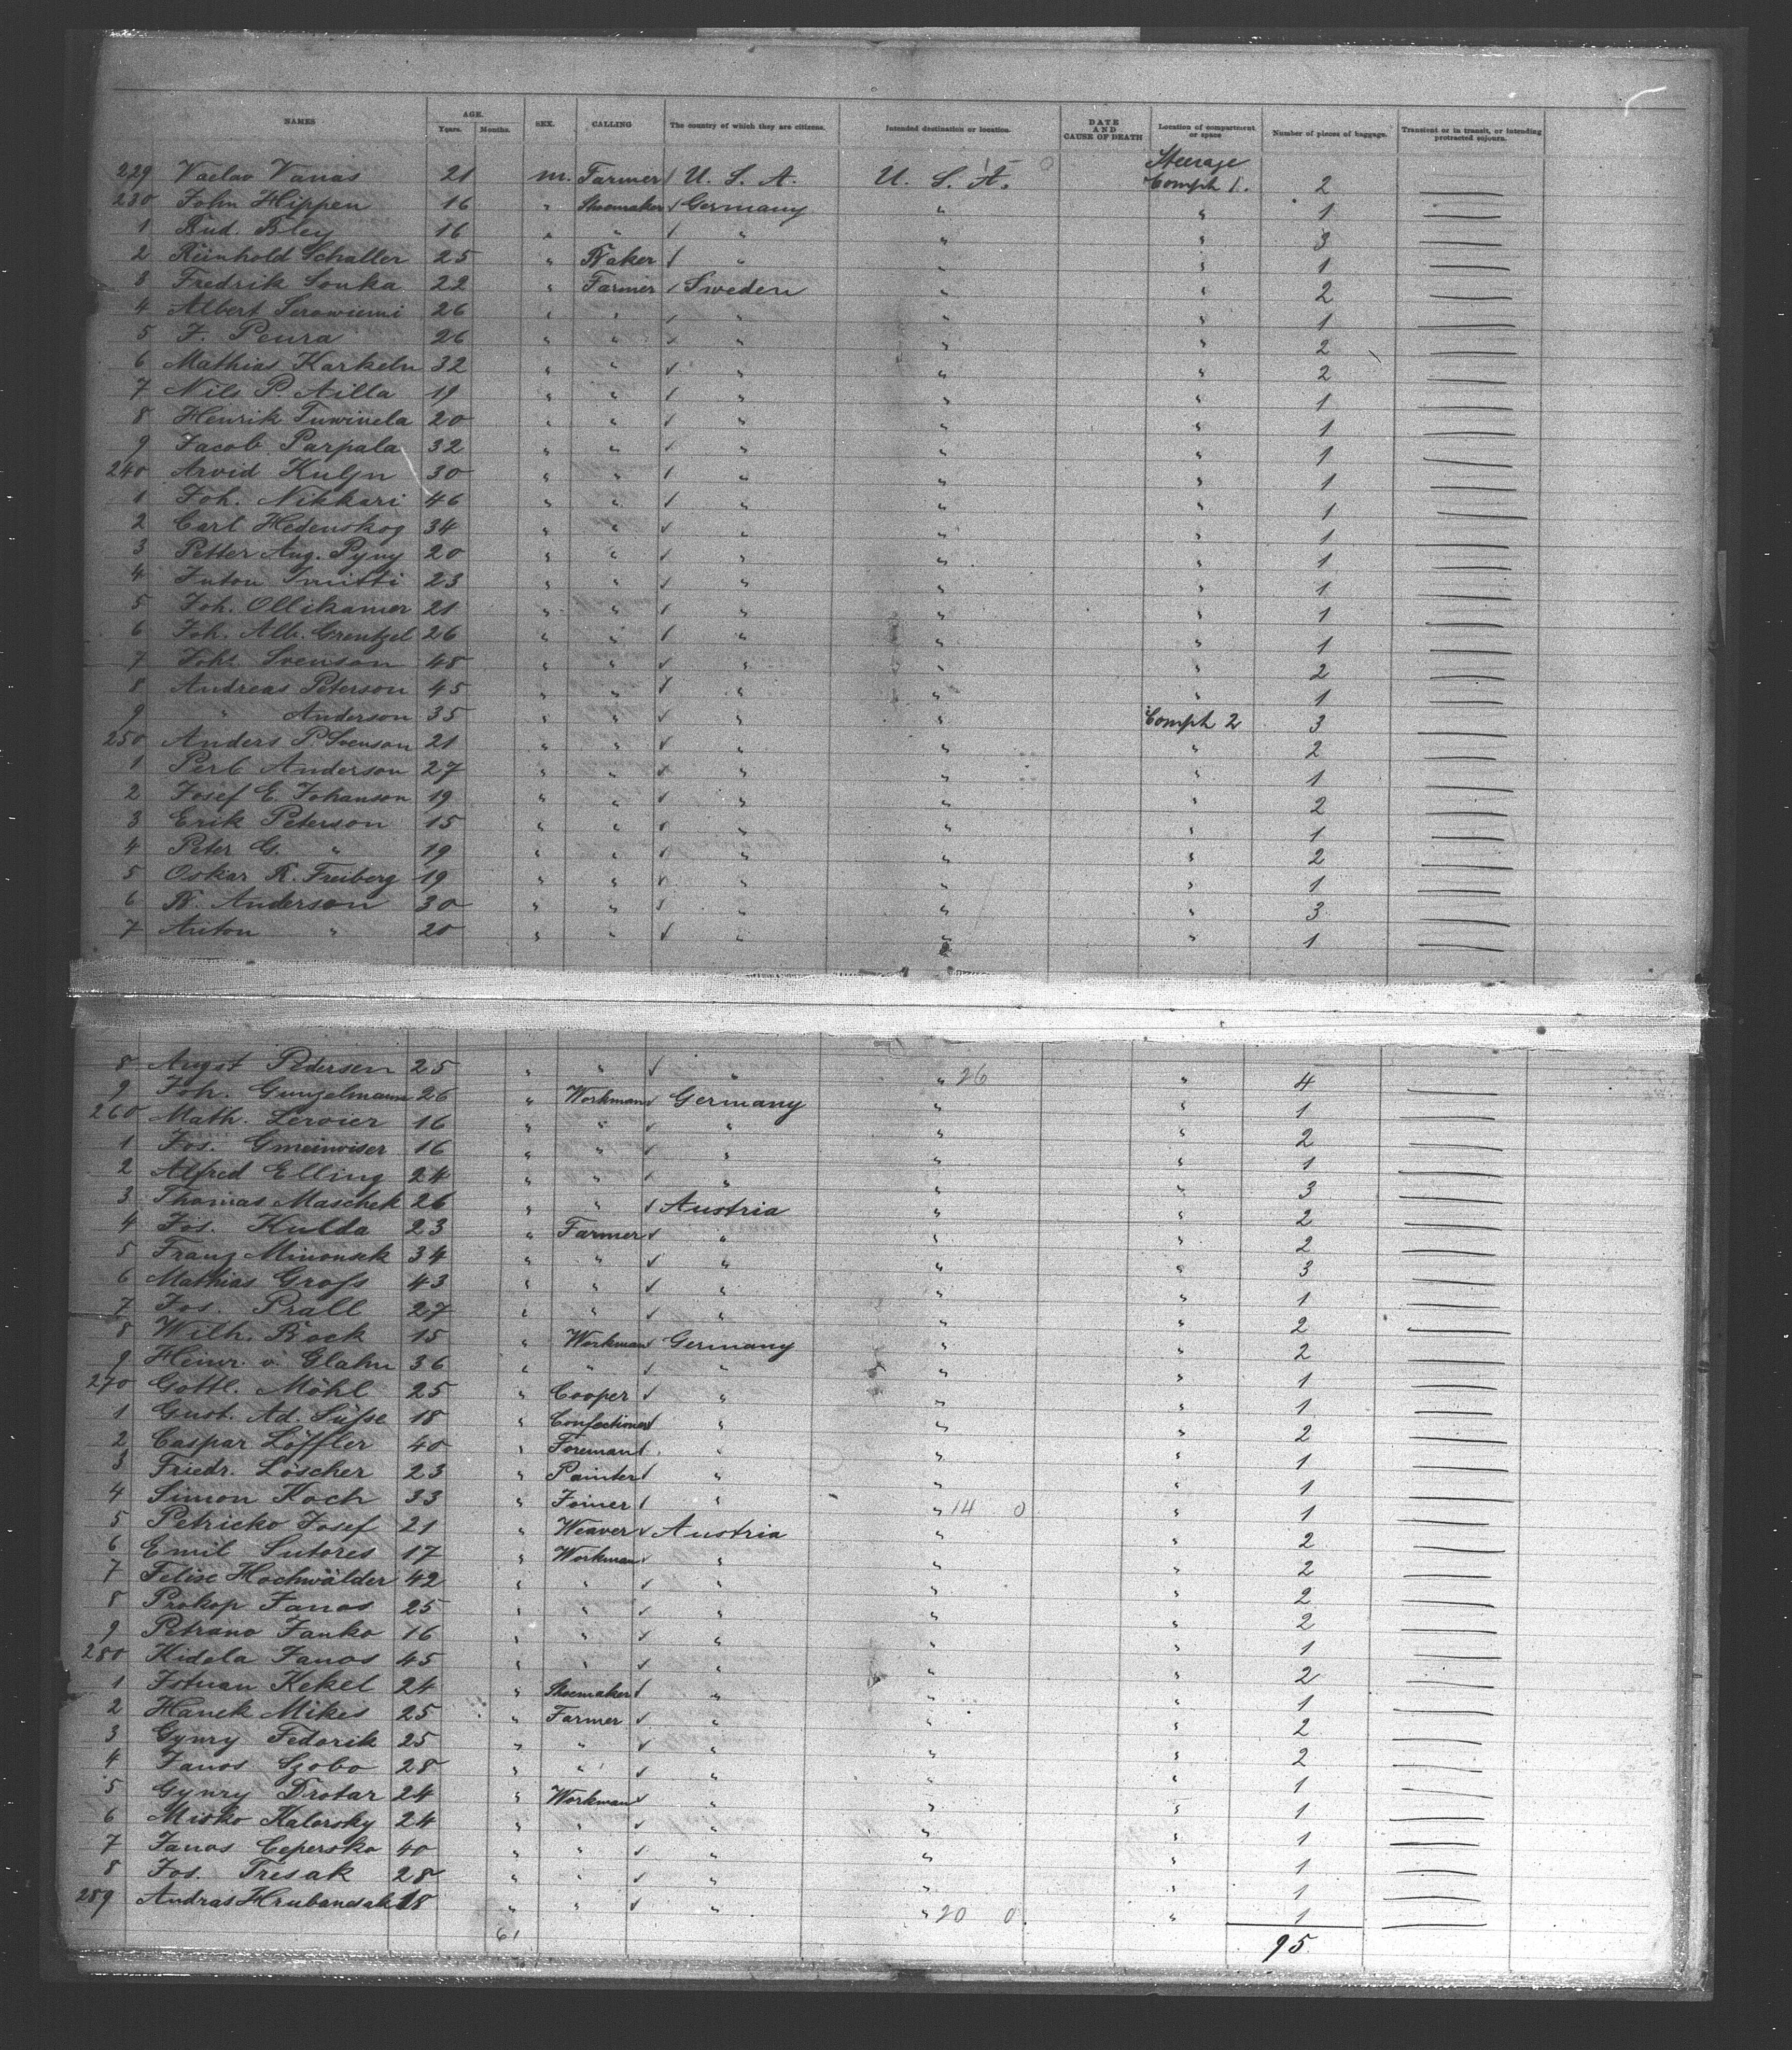 NAMES AGE. Years. Months. SEX. CALLING The country of which they are citizens. Intended destination or location. DATE AND CAUSE OF DEATH Location of compartment or space Number of pieces of baggage. Transient or in transit, or intending protracted sojourn.
Steerage
229 Vaclav Vanas 21 m. Farmer U. S. A. U. S. A. Compt 1. 2
230 John Hippen 16 " Shoemaker Germany " " 1
1 Rud. Bley 16 " " " " " 3
2 Reinhold Schaller 25 " Baker " " " 1
3 Fredrik Souka 22 " Farmer Sweden " " 2
4 Albert 26 " " " " " 1
5 J. Peura 26 " " " " " 2
6 Mathias Karkeln 32 " " " " " 2
7 Nils P. Ailla 19 " " " " " 1
8 Henrik 20 " " " " " 1
9 Jacob Parpala 32 " " " " " 1
240 Arvid Kuljn 30 " " " " " 1
1 Joh. Nikkari 46 " " " " " 1
2 Carl Hedenskog 34 " " " " " 1
3 Petter Aug. Pyny 20 " " " " " 1
4 23 " " " " " 1
5 Joh. Ollikamer 21 " " " " " 1
6 Joh. Alb. Grentzel 26 " " " " " 1
7 Joh. Svenson 48 " " " " " 2
8 Andreas Peterson 45 " " " " " 1
9 " Anderson 35 " " " " Compt 2 3
250 Anders P. Svenson 21 " " " " " 2
1 Anderson 27 " " " " " 1
2 Josef E. Johanson 19 " " " " " 2
3 Erik Peterson 15 " " " " " 1
4 Peter G. " 19 " " " " " 2
5 Oskar R. Freiberg 19 " " " " " 1
6 B. Anderson 30 " " " " " 3
7 Anton " 20 " " " " " 1
8 Augst Pedersen 25 " " " " 26 " 4
9 Joh. Gunzelmann 26 " Workman Germany " " 1
260 Math. Leroier 16 " " " " " 2
1 Jos. Gmeinwiser 16 " " " " " 1
2 Alfred Elling 24 " " " " " 3
3 Thomas Maschek 26 " " Austria " " 2
4 Jos. Kulda 23 " Farmer " " " 2
5 Franz Minonsek 34 " " " " " 3
6 Mathias Groß 43 " " " " " 1
7 Jos. Prall 27 " " " " " 2
8 Wilh. Bock 15 " Workman Germany " " 2
9 Heinr. v. Glahn 36 " " " " " 1
270 Gottl. Möhl 25 " Cooper " " " 1
1 Gust. Ad. Süße 18 " Confectioner " " " 2
2 Caspar Löffler 40 " Foreman " " " 1
3 Friedr. Löscher 23 " Painter " " " 1
4 Simon Koch 33 " Joiner " " 14 0 " 1
5 Petricko Josef 21 " Weaver Austria " " 2
6 Emil Sutores 17 " Workman " " " 2
7 Felise Hochwälder 42 " " " " " 2
8 Prokop Janos 25 " " " " " 2
9 Petrano Janko 16 " " " " " 1
280 Hidela Janos 45 " " " " " 2
1 Istvan Kekel 24 " Shoemaker " " " 1
2 Hanek Mikes 25 " Farmer " " " 2
3 Gynry Fedorik 25 " " " " " 2
4 Janos Szobo 28 " " " " " 1
5 Gynry Drotar 24 " Workman " " " 1
6 Misko Kalersky 24 " " " " " 1
7 Janos Cepersko 40 " " " " " 1
8 Jos. Tresak 28 " " " " " 1
289 Andras Hrubancsak 18 " " " " 20 0. " 1
61 95